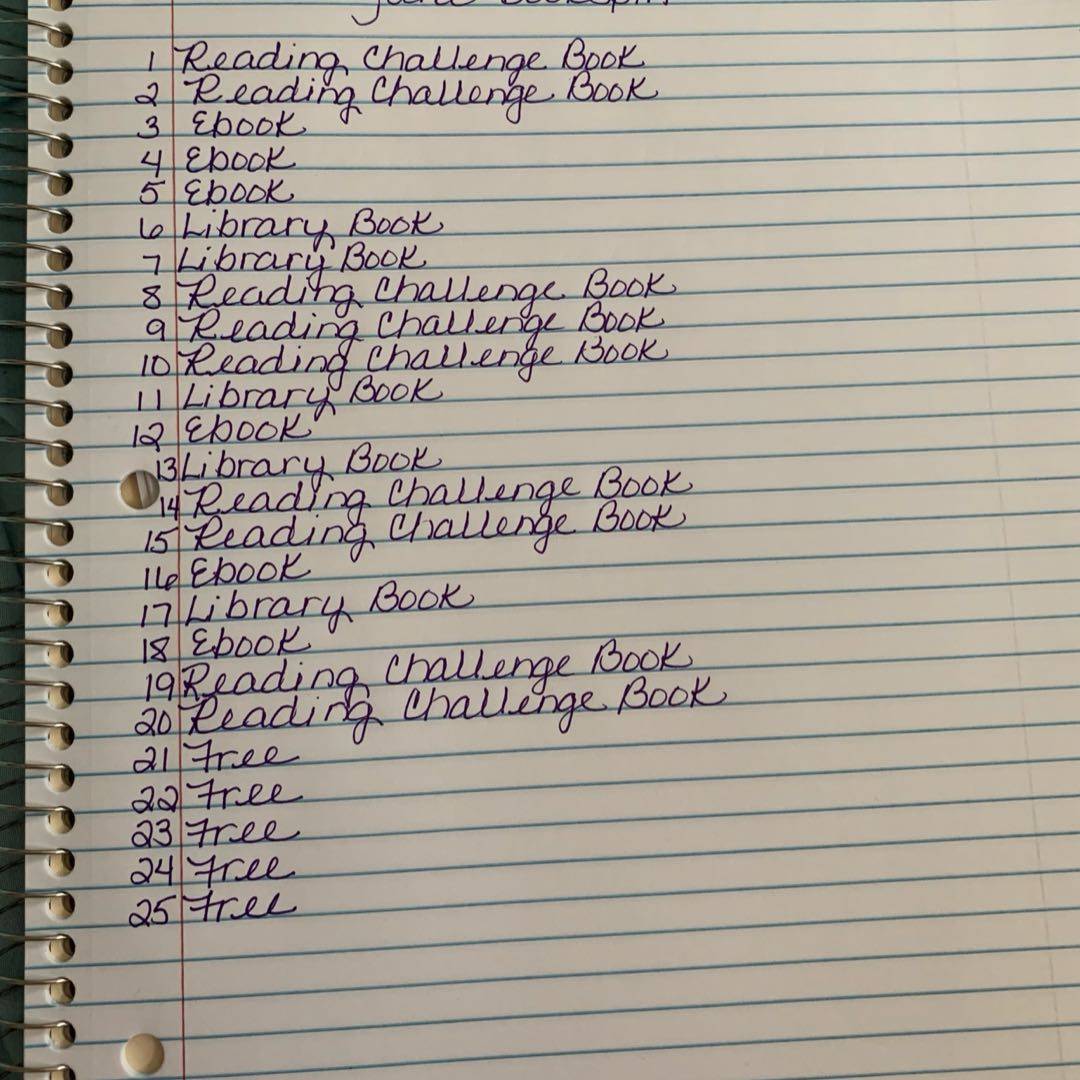 1 Reading Challenge Book
2 Reading Challenge Book
3 Ebook
4 Ebook
5 Ebook
6 Library Book
7 Library Book
8 Reading Challenge Book
9 Reading Challenge Book
10 Reading Challenge Book
11 Library Book
12 Ebook
13 Library Book
14 Reading Challenge Book
15 Reading Challenge Book
16 Ebook
17 Library Book
18 Ebook
19 Reading Challenge Book
20 Reading Challenge Book
21 Free
22 Free
23 Free
24 Free
25 Free